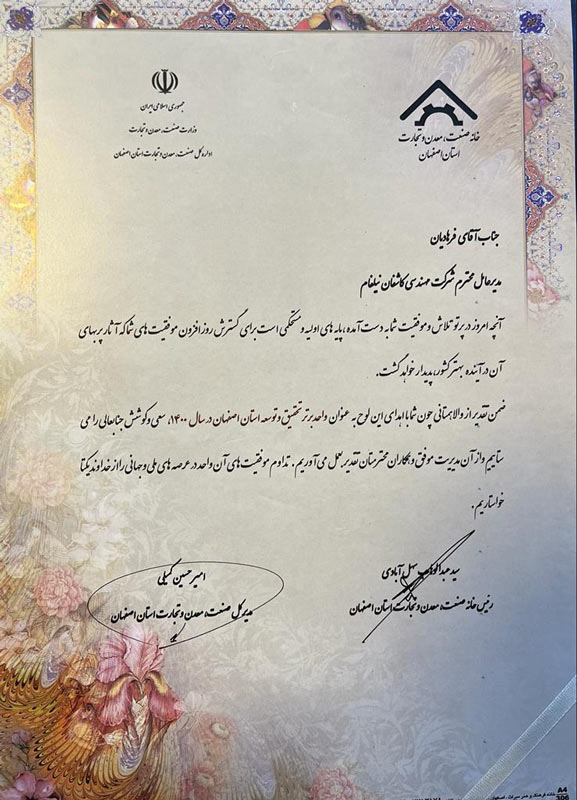 جمهوری اسلامی ایران
وزارت صنعت، معدن و تجارت
اداره کل صنعت، معدن و تجارت استان اصفهان
خانه صنعت، معدن و تجارت
استان اصفهان
جناب آقای فرهادیان
مدیرعامل محترم شرکت مهندسی کاشفان نیلفام
آنچه امروز در پرتو تلاش و موفقیت شما به دست آمده، پایه های اولیه و مستحکمی است برای گسترش روز افزون موفقیت های شما که آثار پربهای
آن در آینده بهتر کشور، پدیدار خواهد گشت.
ضمن تقدیر از والاهمتانی چون شما با اهدای این لوح به عنوان واحد برتر تحقیق و توسعه استان اصفهان در سال ۱۴۰۰، سعی و کوشش جنابعالی را می
ستاییم و از آن مدیریت موفق و همکاران محترمتان تقدیر بعمل می آوریم. تداوم موفقیت های آن واحد در عرصه های ملی و جهانی را از خداوند یکتا
خواستاریم.
سید عبدالوهاب سهل آبادی
رئیس خانه صنعت، معدن و تجارت استان اصفهان
امیرحسین کمیلی
مدیرکل صنعت، معدن و تجارت استان اصفهان
A4